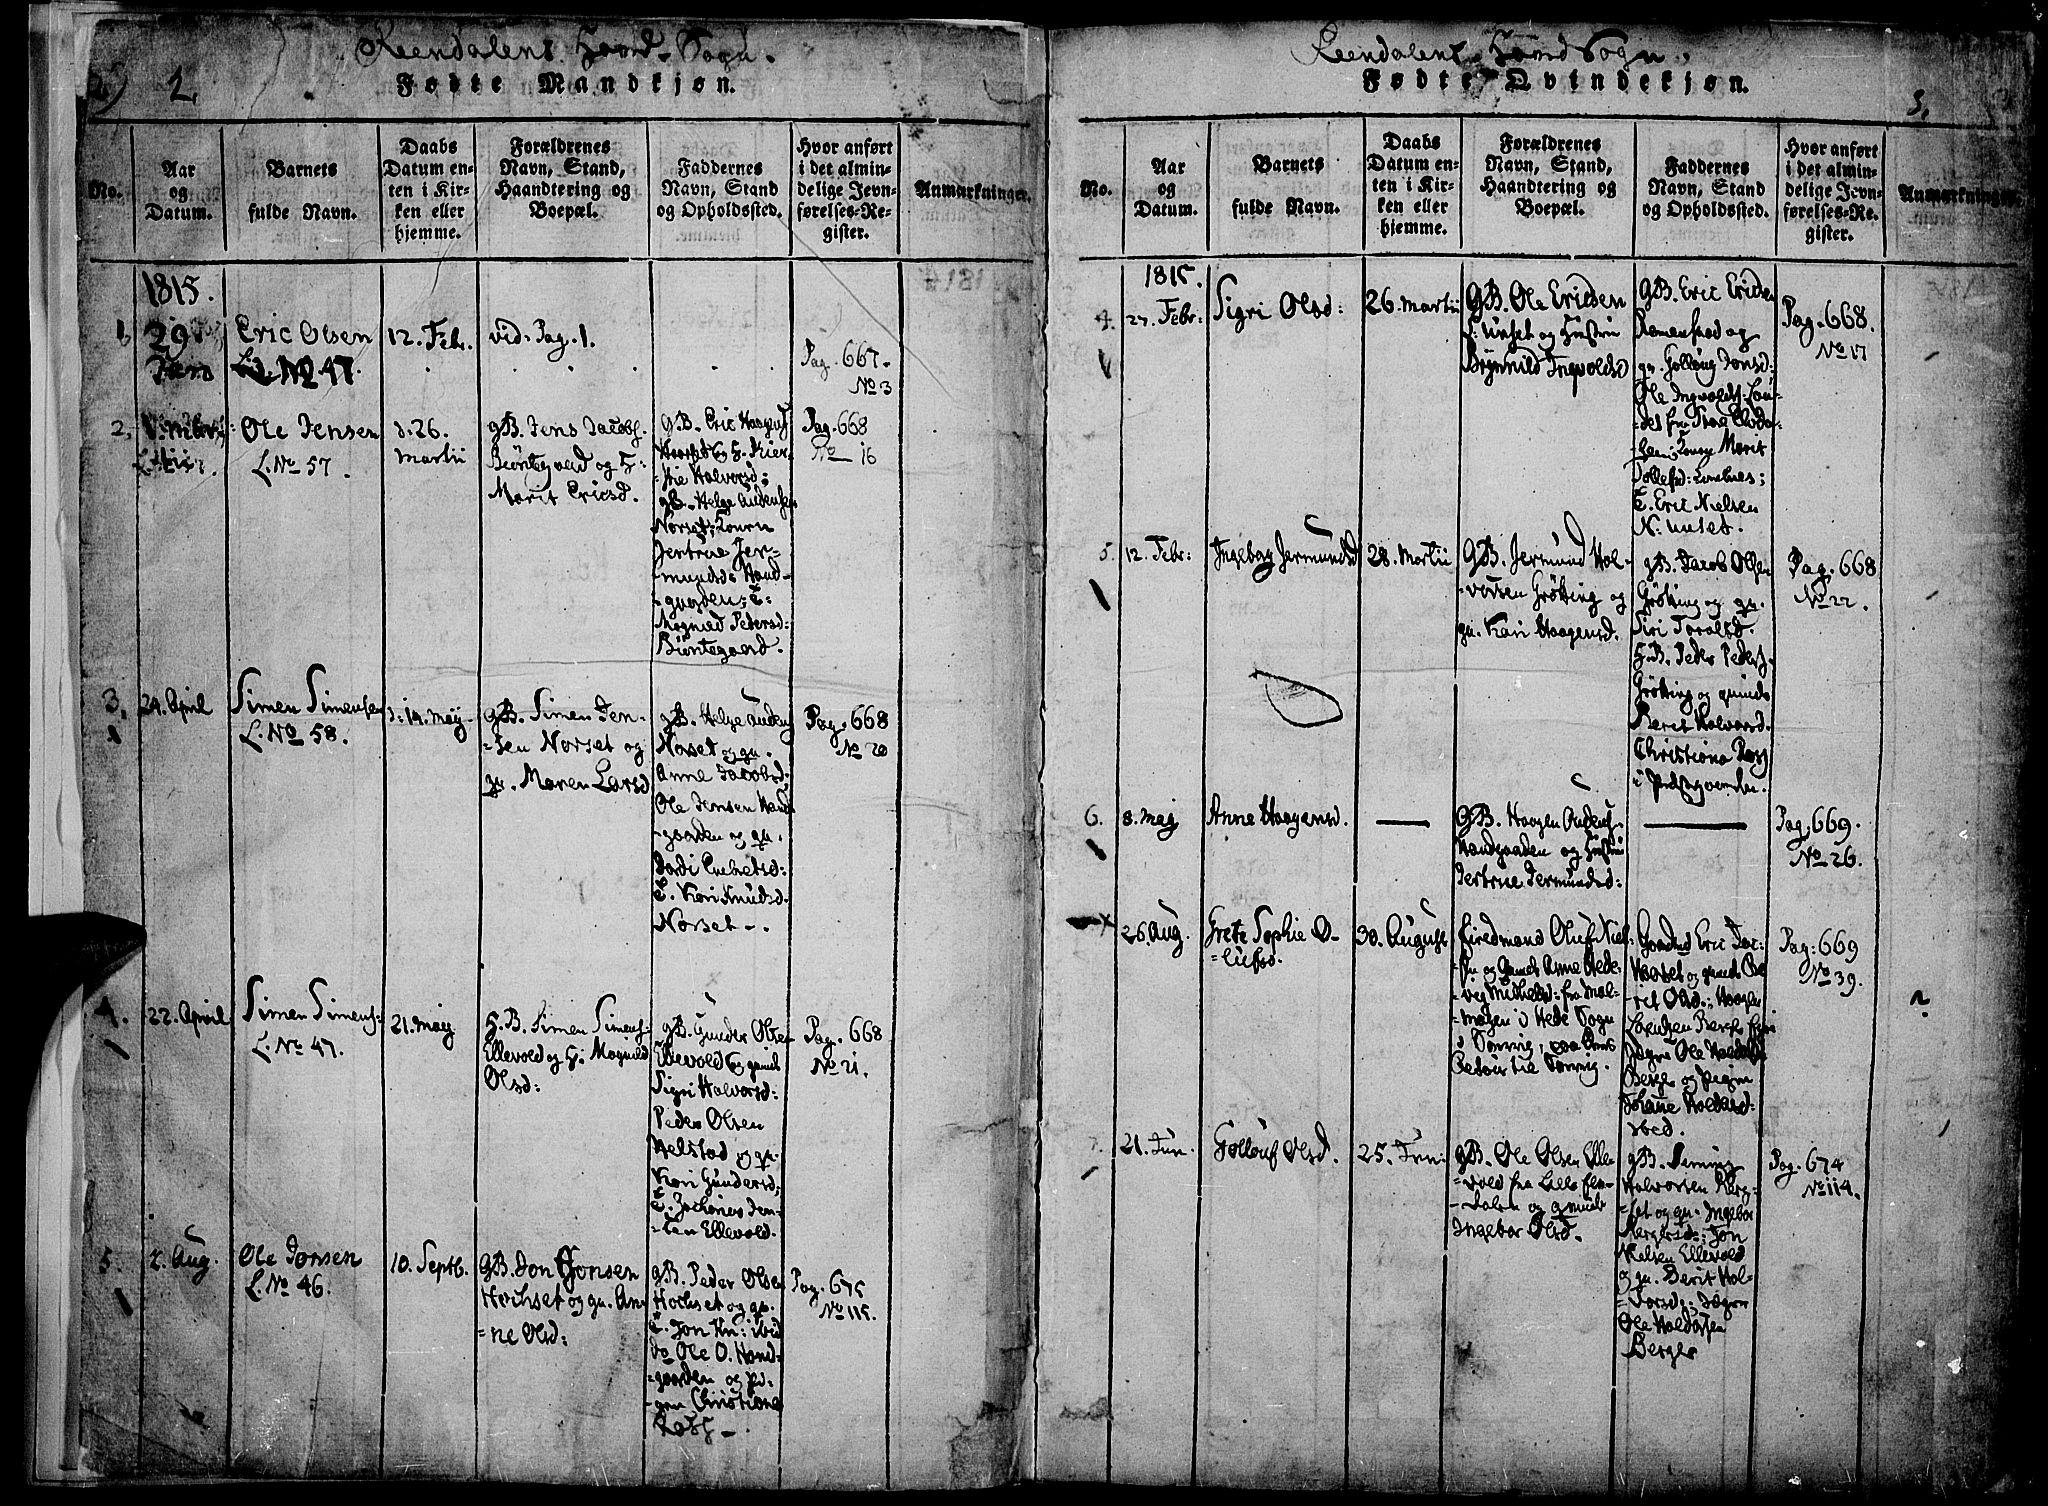 Reendalens Hoved-Sogn.
2.
Fødte Mandkjøn.
No.
Aar
og
Datum.
Barnets
fulde Navn.
Daabs
Datum en-
ten i Kir-
ken eller
hjemme.
Forældrenes
Navn, Stand,
Haandtering og
Boepæl.
Faddernes
Navn, Stand
og Opholdssted.
Hvor anført
i det almin-
delige Jevn-
førelses-Re-
gister.
Anmærkninger.
1815.
1,
29
Jan
Eric Olsen
L. No 47.
12. Febr.
vid. Pag. 1.
Pag. 667.
No 3
2,
Ole Jensen
L. No 57.
d. 26.
Martii
gB. Jens Jacobs.
Biöntegaard og H:
Marit Ericsd.
gB. Eric Haagens
Haarset og H. Kier-
=stie Halvorsd:
gB. Helge Audensen
Norset; Konen
Jertrue Jer-
=mundsd. Haand-
=gaarden; E:
Magnild Pedersd:
Biöntegaard.
Pag. 668
No 16
3,
24. April
Simen Simensen
L. No 58.
d: 14. Maij
gB. Simen Jen-
=sen Norset og
gu. Maren Larsd
gB. Helge Audens
Norset og gu.
Anne Jacobsd.
Ole Jensen Haand
-gaarden og gu.
E. Kari Knudsd.
Norset -.
Pag. 668
No 20
4.
22. April
Simen Simens.
L. No 47.
21. Maij
H. B. Simen Simens.
Ellevold og H. Magnild
Olsd:
gB. Gunder Olsen
Ellevold og
Sigri Halvorsd:
Peder Olsen
Helstad og gu.
Kari Gundersd;
E. Johannes Jen-
=sen Ellevold.
Pag. 668
No 21.
5.
2. Aug.
Ole Jonsen
L. No 46.
10. Septb.
gB. Jon Jonsen
Hochset og gu. An-
=ne Olsd:
gB. Peder Olsen
Hochset og gu.
E. Jon Kn: ibid
do Ole O. Hand-
=gaarden og Pi-
gen Christiane
Rasch -.
Pag. 675
No 115.
Reendalens Hoved Sogn.
3.
Fødte Qvindekjøn.
No.
Aar
og
Datum.
Barnets
fulde Navn.
Daabs
Datum en-
ten i Kir-
ken eller
hjemme.
Forældrenes
Navn, Stand,
Haandtering og
Boepæl.
Faddernes
Navn, Stand
og Opholdssted.
Hvor anført
i det almin-
delige Jevn-
førelses-Re-
gister.
Anmærkninger.
1815.
4.
27. Febr:
Sigri Olsd:
26. Martii
gB. Ole Ericsen
S: Unset og Hustru
Brynnild Ingvoldsd
gB. Eric Ericsen
Romenstad og
gu. Gollaug Jonsd:
Ole Ingvolds:
Konen Marit
E. Eric Nielsen
N. Unset.
Pag. 668.
No 17
5.
12. Febr:
Ingeborg Jermundsd
28. Martii
gB. Jermund Hal-
=vorsen Grötting og
gu. Kari Haagensd.
gB. Jacob Olsen
Grötting og gu.
Siri Toralsd.
H. B. Peder Peders.
Grötting og
Beret Halvorsd.
Christiana Rasch
Pag. 668
No 22.
6.
8. Maij
Anne Haagensd.
gB. Haagen Audens.
Handgaarden og Hustru
Jertrue Jermundsd:
Pag. 669.
No 26.
26 Aug.
Grete Sophie O-
=lufsd.
30. August
Oluf Niel-
og Anne Hede-
=vig Michelsd: fra Mal-
=magen i Hede Sogn
Gaardmd Eric Jac:
Haarset og
=ret Olsd.; Haagen
Lorentzen Berger
Ole Haldors
Berger og Pigen
Johanne Haldorsd:
ibid.
Pag: 669
No 39.
7.
21. Jun.
Gollaug Olsd.
25. Jun:
gB. Ole Olsen Elle-
=vold fra Lille Elv-
-dalen og
Ingebor Olsd.
gB. Simen
Halvorsen Berg-
=set og gu. Ingebor
Bergersd:; Jon
Nielsen Ellevold
og gu. Berit Hal-
=vorsd:;
Ole Haldorsen
Berger
Pag. 674
No 114.